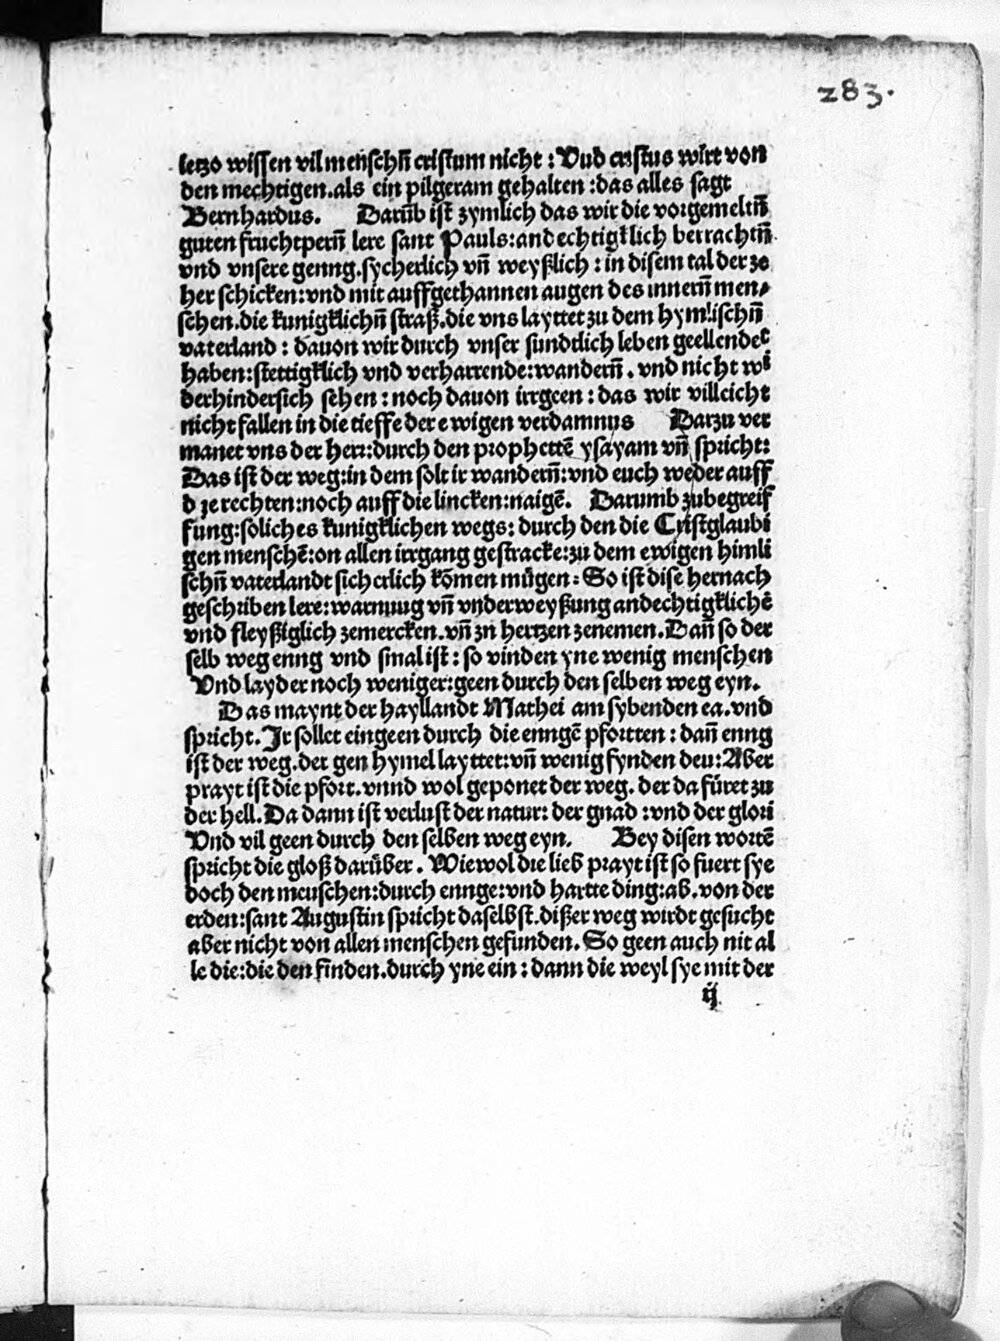 283.
letzo wissen vil menschñ cristum nicht : Vnd cristus wirt von
den mechtigen.als ein pilgeram gehalten :das alles sagt
Bernhardus. Darũb ist zymlich das wir die vorgemeltñ
guten fruchtperñ lere sant Pauls:andechtigklich betrachtñ
vnd vnsere genng.sycherlich vñ weyßlich : in disem tal der ze
her schicken:vnd mit auffgethannen augen des innerñ men⸗
schen.die kunigklichñ straß.die vns layttet zu dem hymlischñ
vaterland : dauon wir durch vnser sundtlich leben geellende
haben:stettigklich vnd verharrende:wanderñ. vnd nicht wi
derhindersich sehen : noch dauon irrgeen : das wir villeicht
nicht fallen in die tieffe der ewigen verdamnus Darzu ver
manet vns der herr:durch den prophetē ysayam vñ spricht:
Das ist der weg:in dem solt ir wanderñ:vnd euch weder auff
die rechten:noch auff die lincken:naigē. Darumb zubegreif
fung:soliches kunigklichen wegs: durch den die Cristglaubi
gen menschē:on allen irrgang gestracke:zu dem ewigen himli
schñ vaterlandt sicherlich kōmen mügen: So ist dise hernach
geschriben lere:warnuug vñ vnderweyßung andechtigklichē
vnd fleyßiglich zemercken.vñ zn hertzen zenemen.Dañ so der
selb weg enng vnd smal ist : so vinden yne wenig menschen
Vnd layder noch weniger:geen durch den selben weg eyn.
Das maynt der hayllandt Mathei am sybenden ca.vnd
spricht.Ir sollet eingeen durch die enngē pfortten : dañ enng
ist der weg.der gen hymel layttet:vñ wenig fynden den:Aber
prayt ist die pfort.vnnd wol geponet der weg. der da füret zu
der hell.Da dann ist verlust der natur: der gnad :vnd der glori
Vnd vil geen durch den selben weg eyn. Bey disen wortē
spricht die gloß darüber. Wiewol die lieb prayt ist so fuert sye
doch den meuschen:durch ennge:vnd hartte ding:ab.von der
erden:sant Augustin spricht daselbst.dißer weg wirdt gesucht
aber nicht von allen menschen gefunden. So geen auch nit al
le die:die den finden.durch yne ein : dann die weyl sye mit der
ij